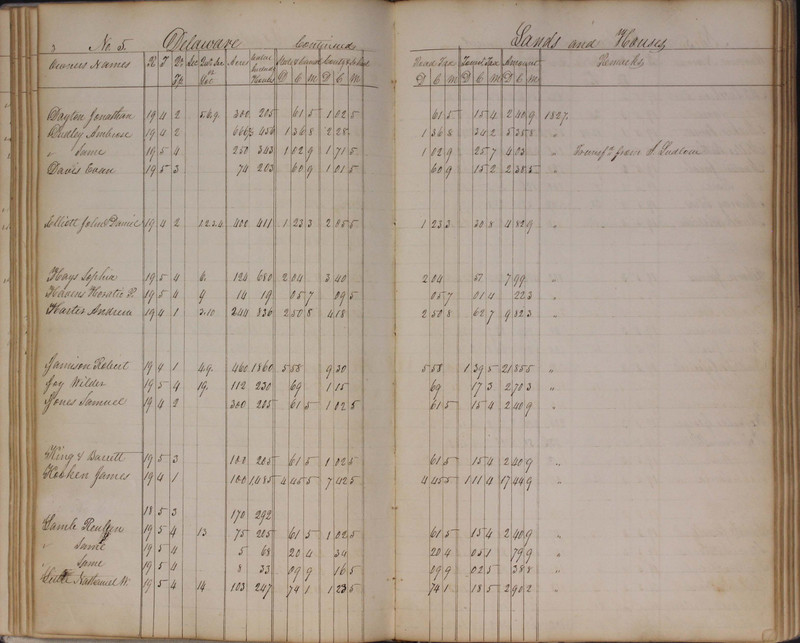 3 No. 5. Delaware Continued Lands and Houses
Owners Names R T Qr Tp Sec Lot Acres State & Canal Road Tax School Tax Amount Remarks
D C M D C M D C M D C M D C M
Dayton Jonathan 19 4 2 5.6.9. 300 205 61 5 1 02 5 61 5 15 4 2 40 9 1827.
Dudley Ambrose 19 4 2 456 1 36 8 2 28 1 36 8 34 2 5 35 8 "
" Same 19 5 4 250 343 1 02 9 1 71 5 1 02 9 25 7 4 03 " from Ludlow
Davis Evan 19 5 3 74 203 60 9 1 01 5 60 9 15 2 2 38 5 "
Elliott John & Daniel 19 4 2 1.2.3.4. 402 411 1 23 3 2 05 5 1 23 3 30 8 4 82 9 "
Hays Sophia 19 5 4 6. 124 680 2 04 3 40 2 04 51 7 99 "
Havens Horatio P. 19 5 4 9 14 19 05 7 09 5 05 7 01 4 22 3 "
Harter Andrew 19 4 1 3.10 244 836 2 50 8 4 18 2 50 8 62 7 9 82 3 "
Jamison Robert 19 4 1 4.9. 460 1860 5 58 9 30 5 58 1 39 5 21 85 5 "
Joy Wilder 19 5 4 19. 112 230 69 1 15 69 17 3 2 70 3 "
Jones Samuel 19 4 2 300 205 61 5 1 02 5 61 5 15 4 2 40 9 "
King & Barritt 19 5 3 100 205 61 5 1 02 5 61 5 15 4 2 40 9 "
Kooken James 19 4 1 100 1,485 4 45 5 7 42 5 4 45 5 1 11 4 17 44 9 "
18 5 3 170 292
Lamb Reuben 19 5 4 13 75 205 61 5 1 02 5 61 5 15 4 2 40 9 "
" Same 19 5 4 5 68 20 4 34 20 4 05 1 79 9 "
" Same 19 5 4 8 33 09 9 16 5 09 9 02 5 38 8 "
Little Nathaniel W. 19 5 4 14 103 247 74 1 1 23 5 74 1 18 5 2 90 2 "